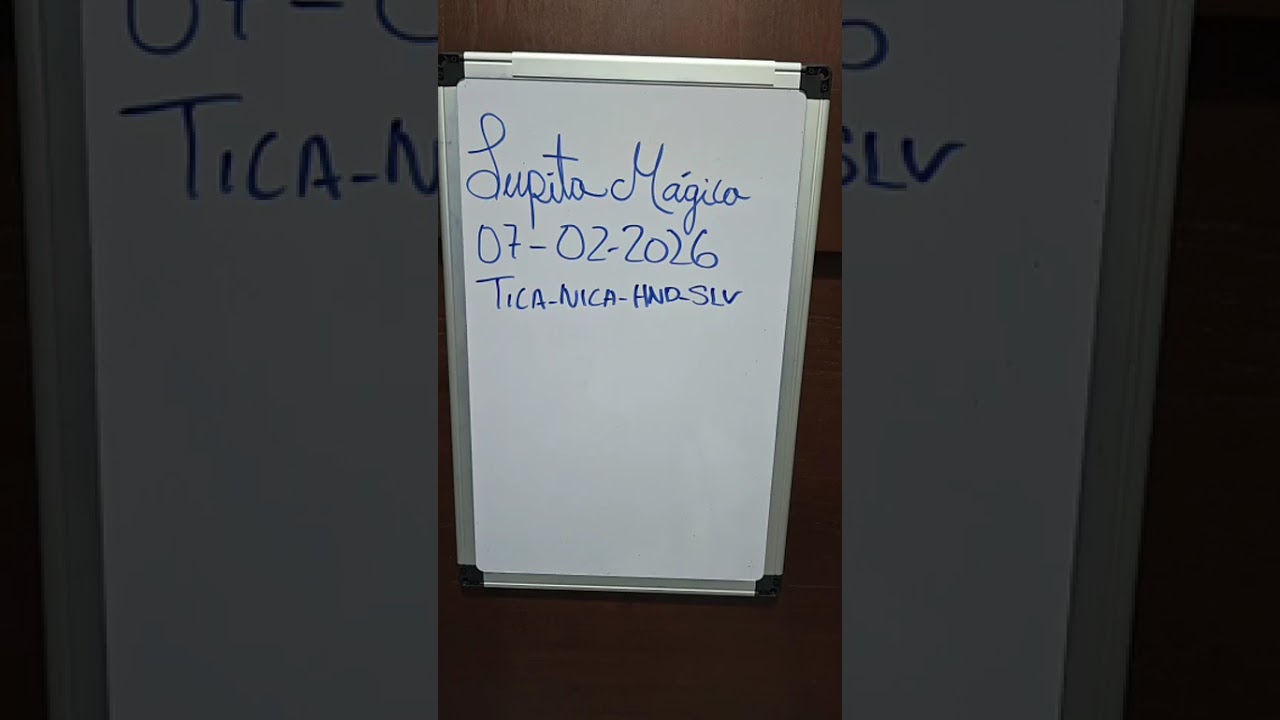 Lupita Mágica
07-02-2026
TICA-NICA-HND-SLV